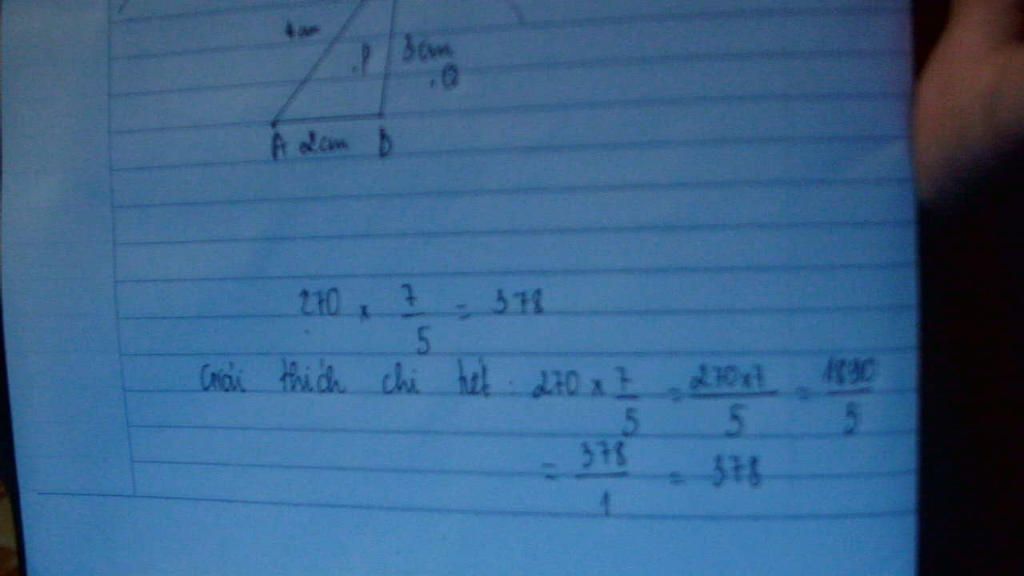 4cm
.P 3cm
.Q
A 2cm B
270 x 7/5 = 378
Giải thích chi tiết : 270 x 7/5 = 270x7/5 = 1890/5
= 378/1 = 378